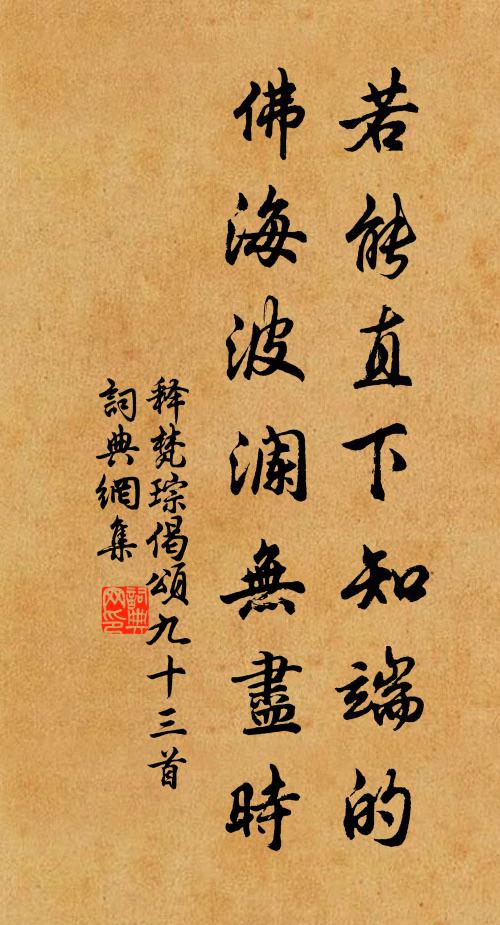 若能直下知端的
佛海波澜無盡時
释梵琮偈頌九十三首
詞典網集
詞典
网印